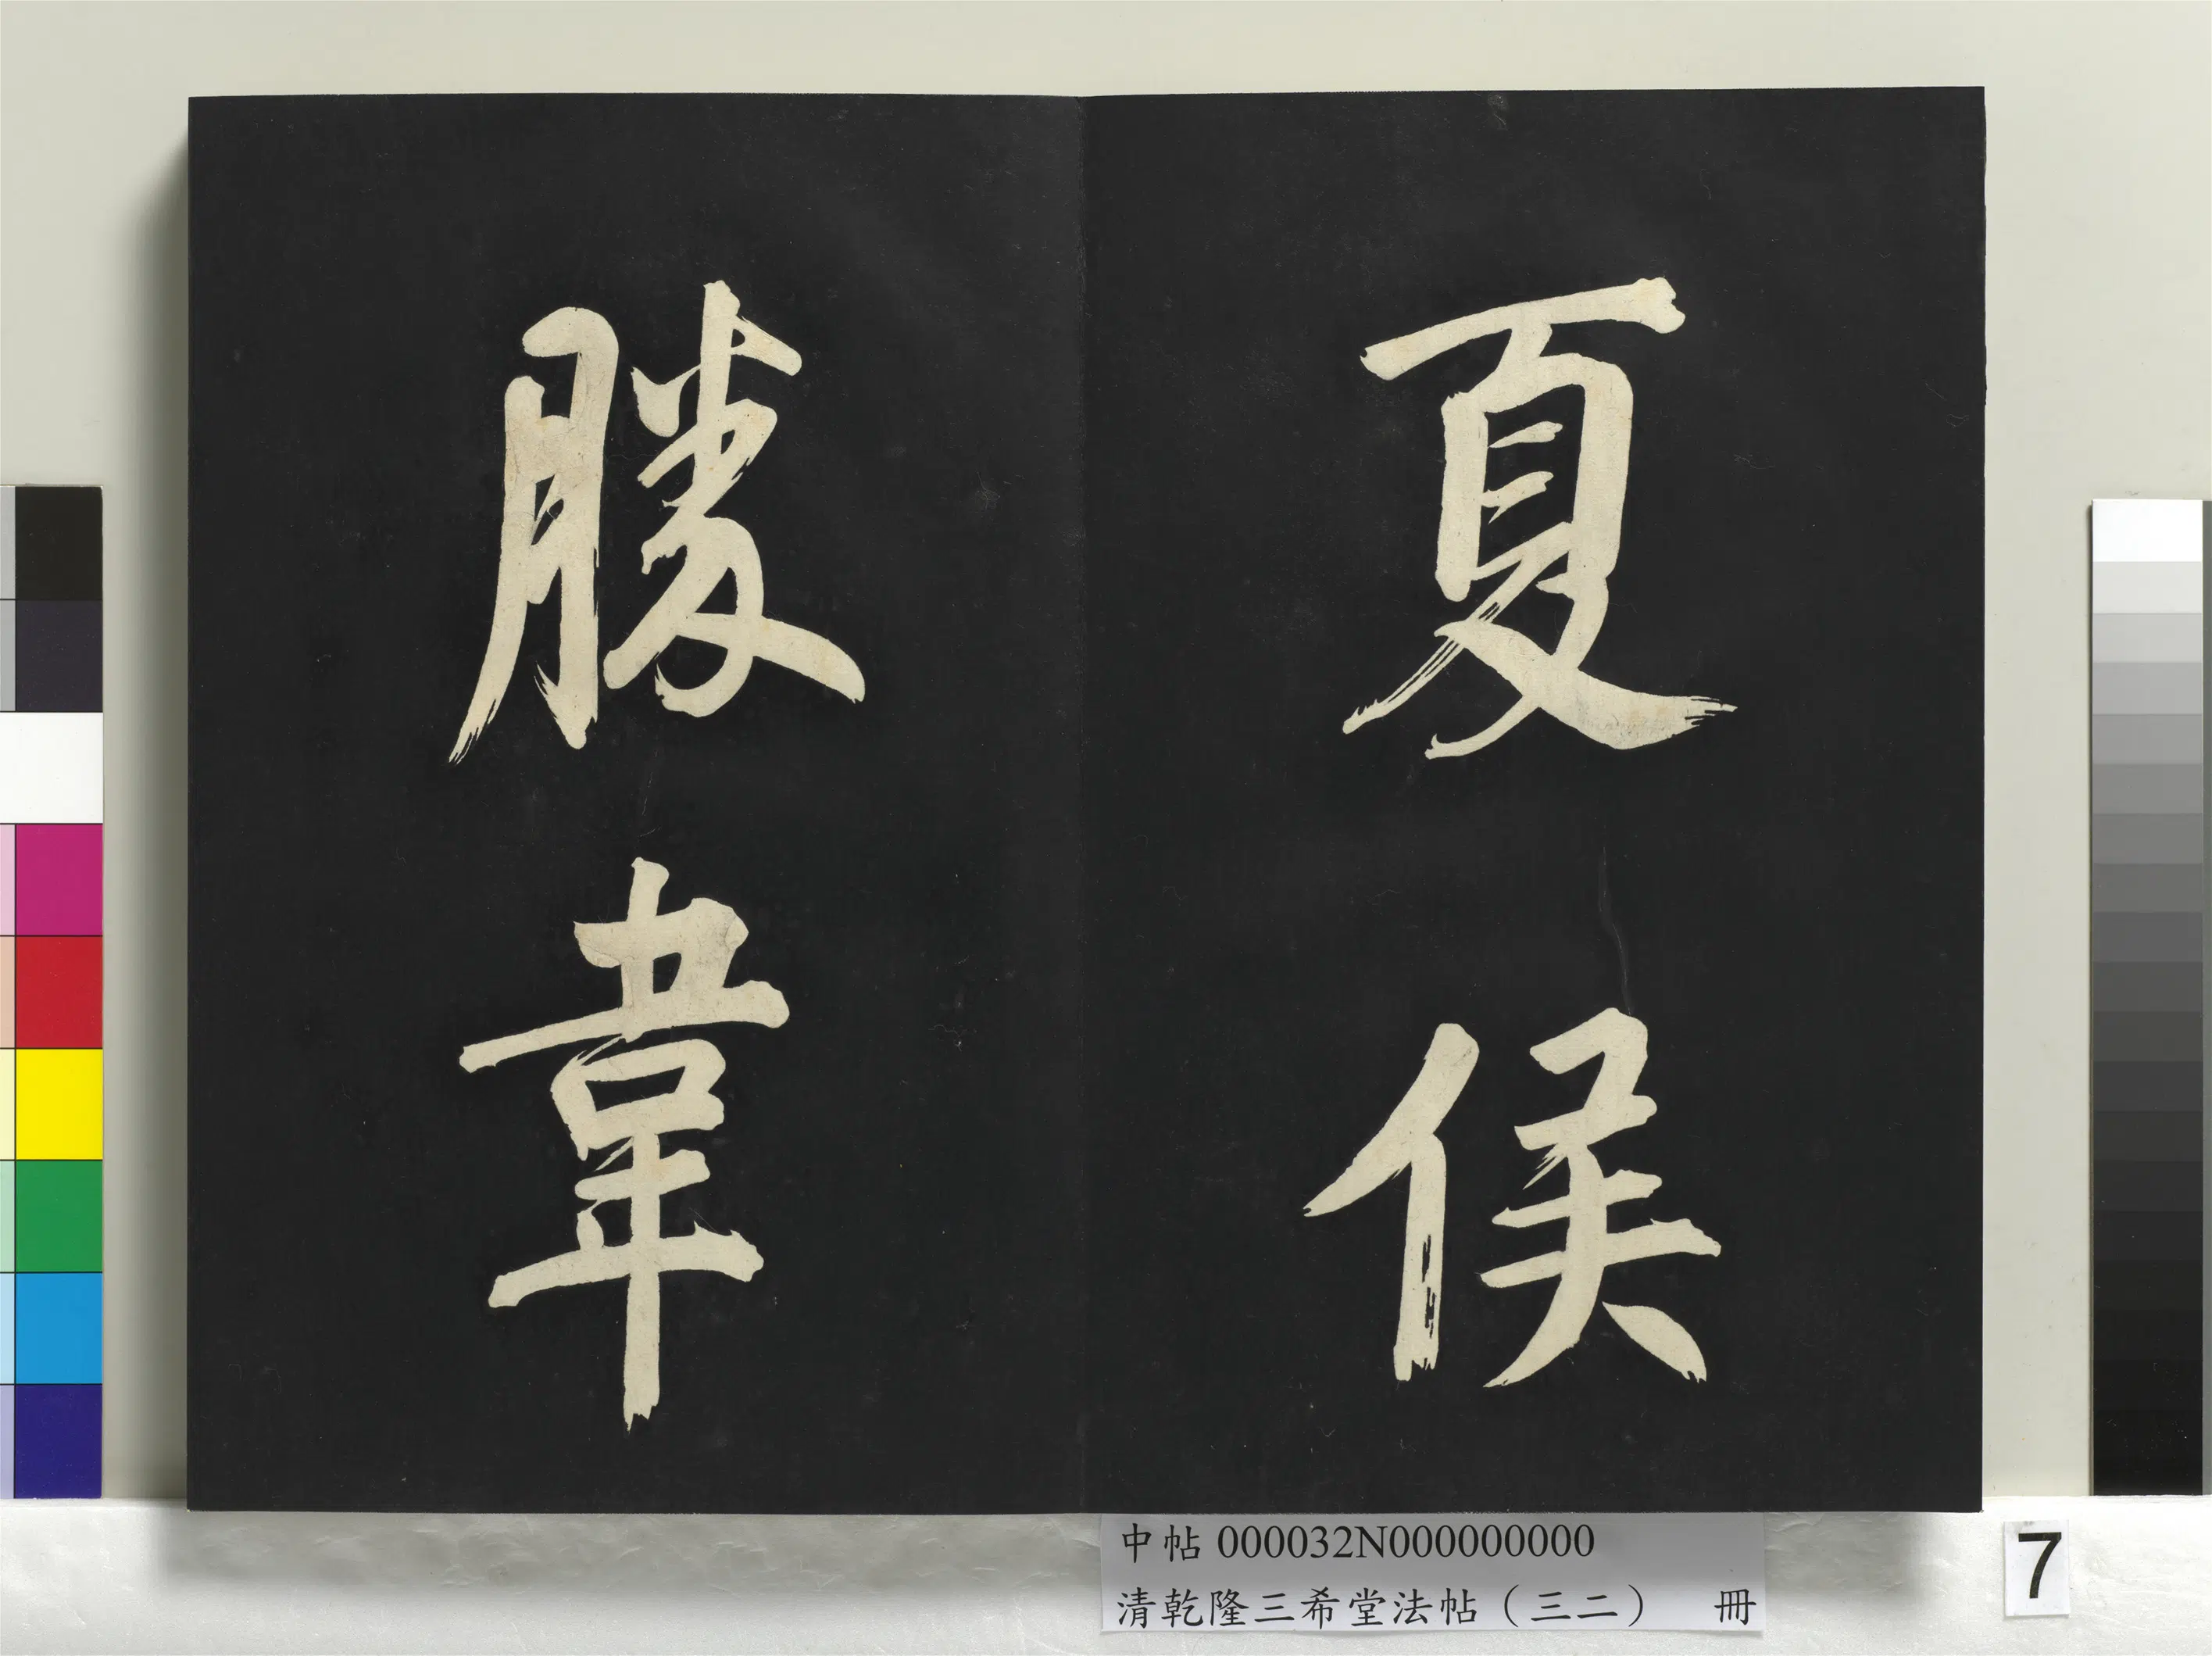 夏侯
勝韋
中帖 000032N000000000
清乾隆三希堂法帖（三二） 冊
7